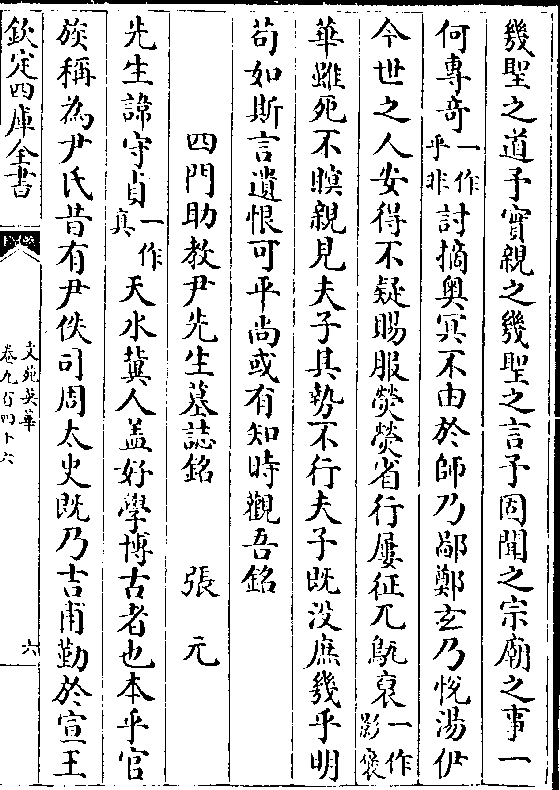 幾聖之道予實親之幾聖之言予固聞之宗廟之事一
何專奇一作乎非討摘奥冥不由於師乃鄙鄭玄乃悅湯伊
今世之人安得不疑賜服熒熒省行屢征兀鴥裒一作影褒
華雖死不瞑親見夫子其勢不行夫子既没庶幾乎明
苟如斯言遺恨可平尚或有知時觀吾銘
四門助教尹先生墓誌銘 張元
先生諱守貞一作真天水冀人盖好學博古者也本乎官
族稱為尹氏昔有尹佚司周太史既乃吉甫勤於宣王
欽定四庫全書
文苑英華
卷九百四十六
六